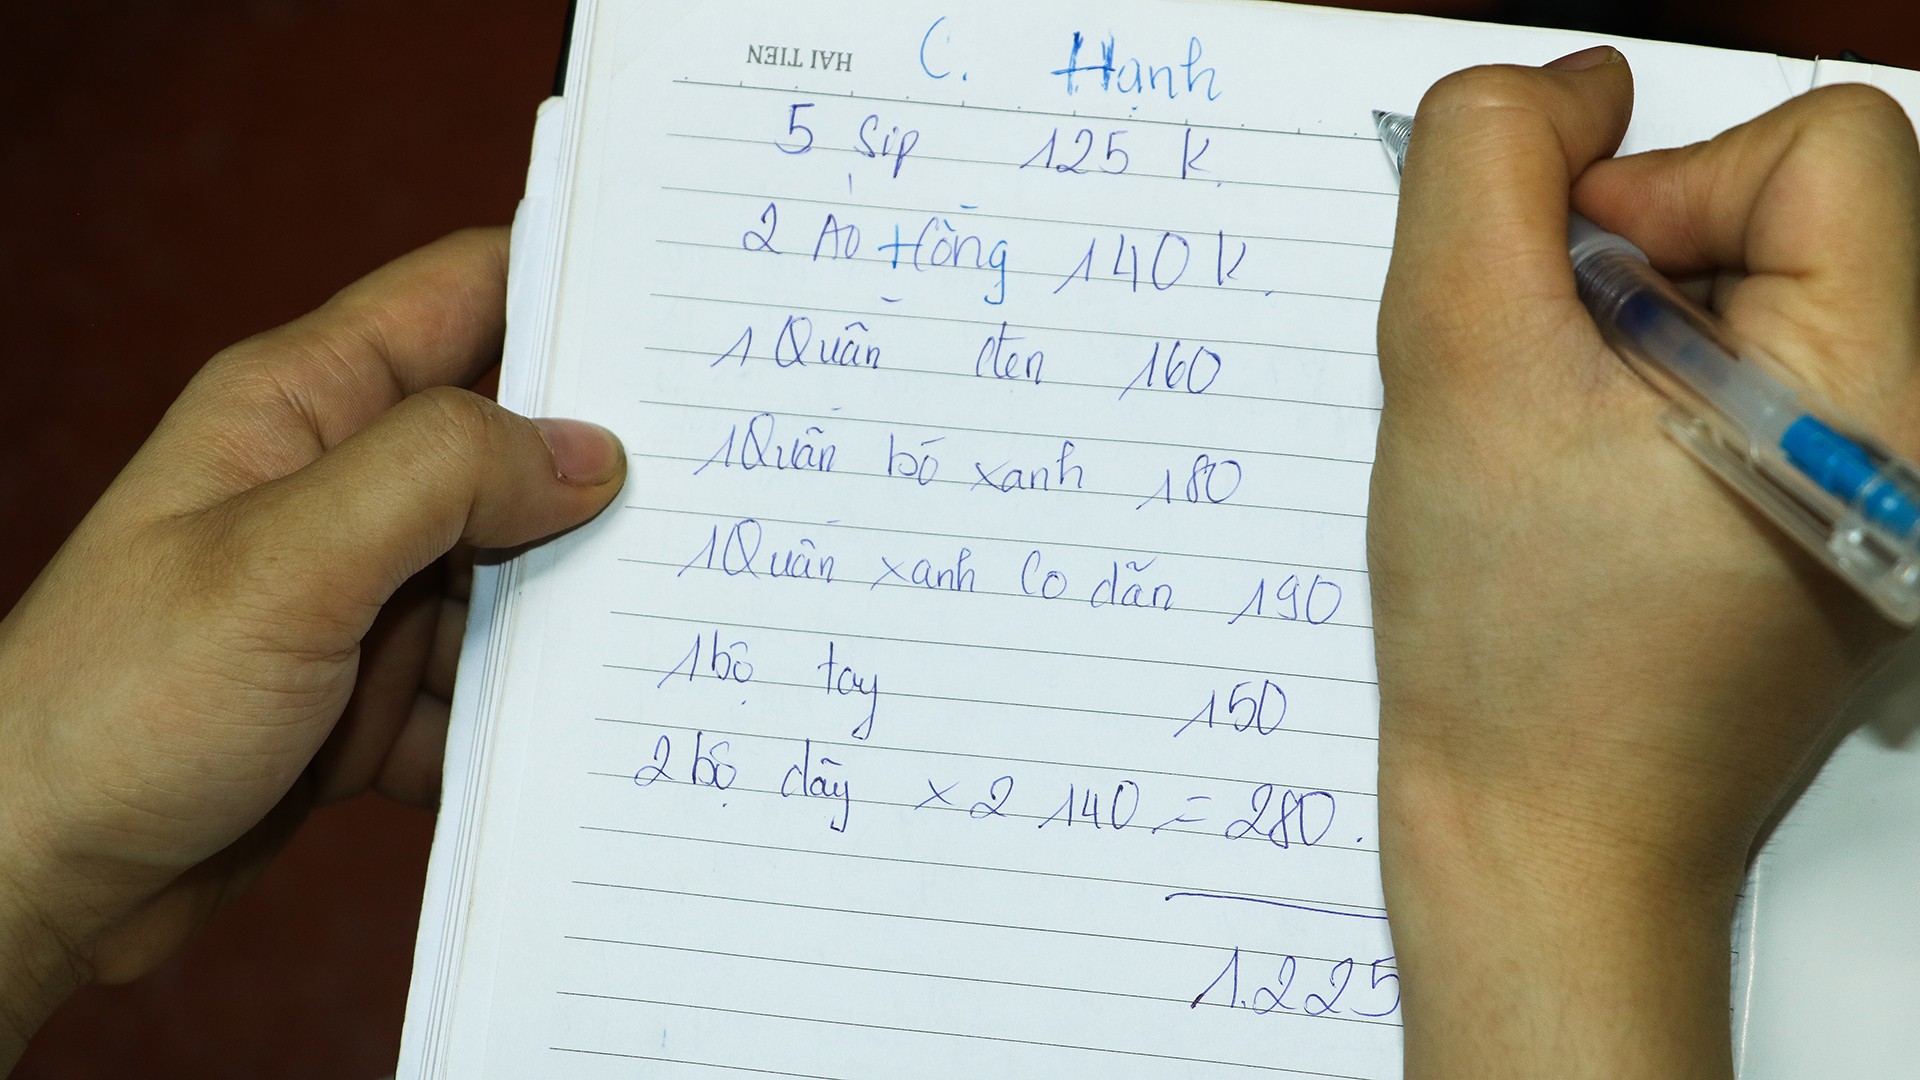 HAI TIEN
C. Hạnh
5 Sip 125 K.
2 Áo Hồng 140 K.
1 Quần đen 160
1 Quần bò xanh 180
1 Quần xanh Co dãn 190
1 bộ tay 150
2 bộ dãy x 2 140 = 280.
1.225